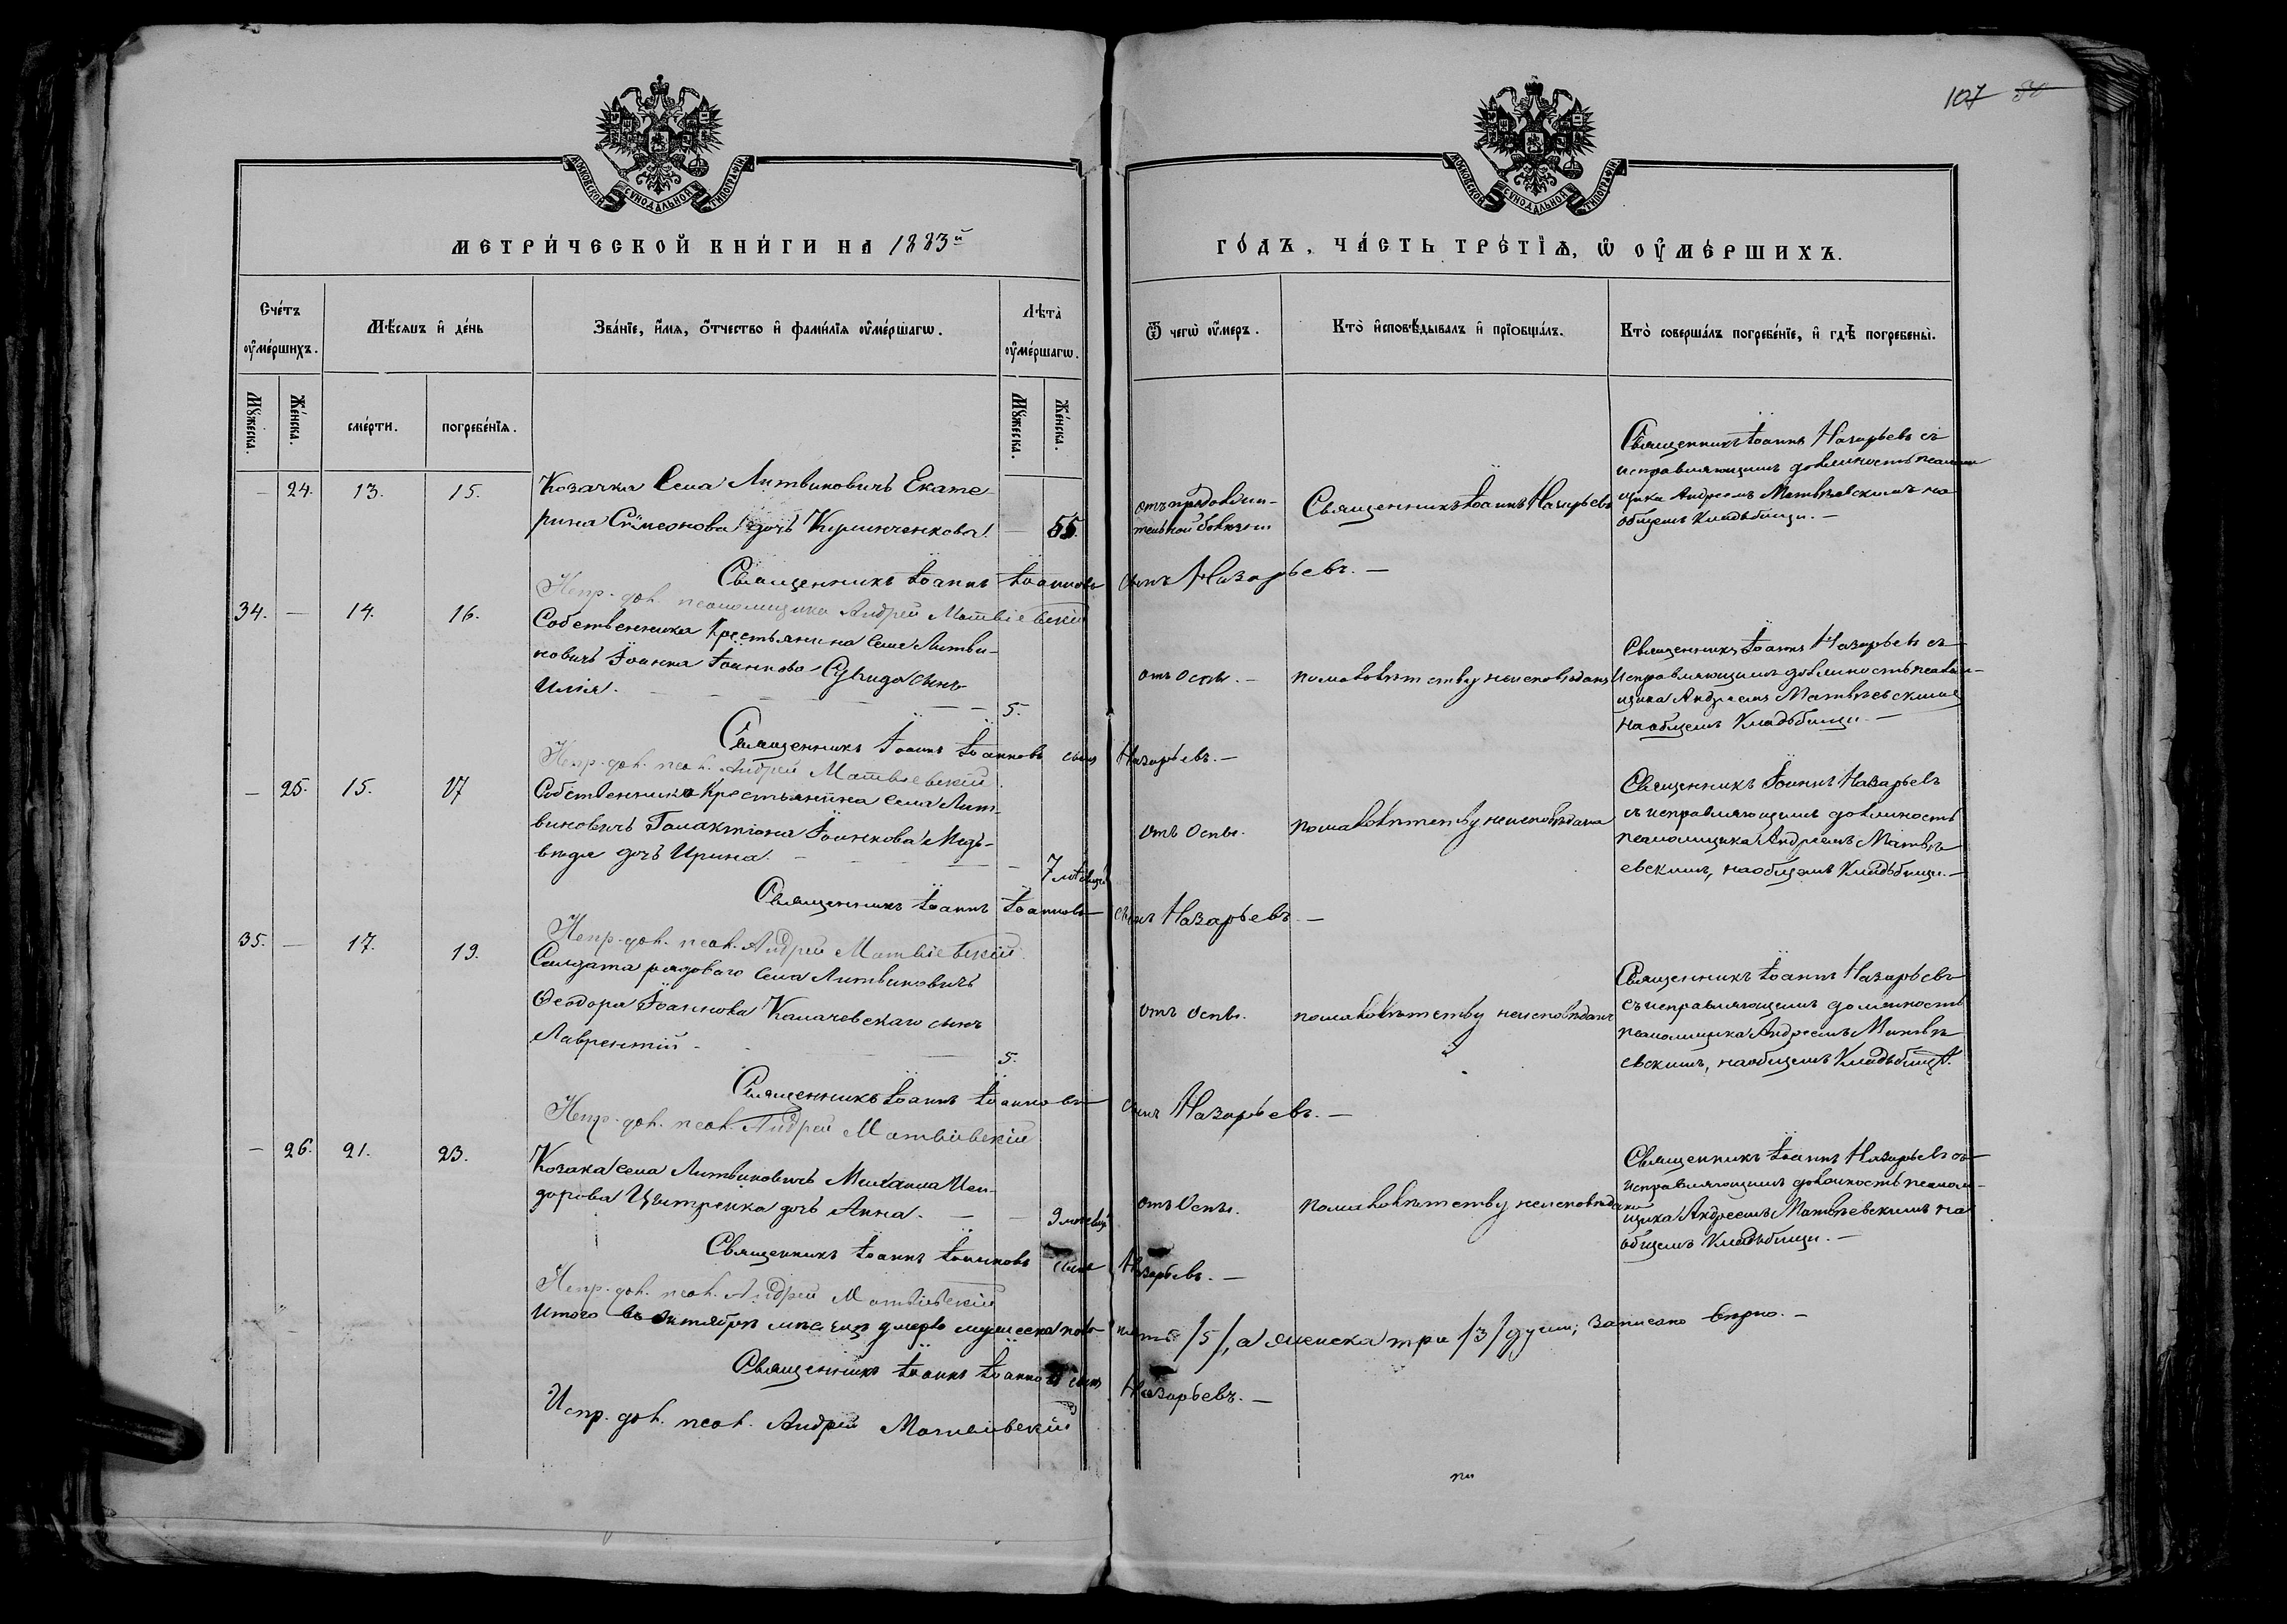 107 80
МОСКОВСКОЙ СѴНОДАЛЬНОЙ ТИПОГРАФІИ
МОСКОВСКОЙ СѴНОДАЛЬНОЙ ТИПОГРАФІИ
МЕТРИ́ЧЕСКОЙ КНИ́ГИ НА 1883й
ГО́ДЪ, ЧА́СТЬ ТРЕ́ТЇѦ, Ѡ ОУ҆МЕ́РШИХЪ.
Сче́тъ оу҆ме́ршихъ.
Мѣ́сѧцъ и҆ де́нь
Зва́нїе, и҆́мѧ, ѻ҆́тчество и҆ фами́лїѧ оу҆ме́ршагѡ.
Лѣта̀ оу҆ме́ршагѡ.
Ѿ чегѡ̀ оу҆́меръ.
Кто̀ и҆сповѣ́дывалъ и҆ прїѡбща́лъ.
Кто̀ соверша́лъ погребе́нїе, и҆ гдѣ̀ погребены̀.
Мꙋ́жеска.
Же́нска.
сме́рти.
погребе́нїѧ.
Мꙋ́жеска.
Же́нска.
— 24. 13. 15.
Козачка села Литвиновичъ Екате-
рина Симеонова дочь
— 55.
отъ продолжи-
тельной болезни
Священникъ Іоаннъ Назарьевъ
Священникъ Іоаннъ Назарьевъ съ
исправляющимъ должность псалом
щика Андреемъ Матвѣевскимъ на
общемъ кладбищи. —
Священникъ Іоаннъ Іоанновъ сынъ Назарьевъ. —
Испр. дол. псаломщика Андрей Матвіевскій
34. — 14. 16.
Собственника Крестьянина села Литви-
новичъ Іоанна Іоаннова сынъ
Илія. 5.
отъ оспы. —
помаловѣтству неисповѣданъ
Священникъ Іоаннъ Назарьевъ съ
исправляющимъ должность псалом-
щика Андреемъ Матвѣевскимъ
на общемъ кладбищи. —
Священникъ Іоаннъ Іоанновъ сынъ Назарьевъ. —
Испр. дол. псал. Андрей Матвіевскій
— 25. 15. 17
Собственника крестьянина села Лит-
виновичъ Галактіона Іоаннова Медъ-
вѣдя дочь Ирина. — 7
отъ оспы.
помаловѣтству неисповѣдана
Священникъ Іоаннъ Назарьевъ
съ исправляющимъ должность
псаломщика Андреемъ Матвѣ-
евскимъ, на общемъ кладбищи. —
Священникъ Іоаннъ Іоанновъ сынъ Назарьевъ. —
Испр. дол. псал. Андрей Матвіевскій
35. — 17. 19.
Солдата рядового села Литвиновичъ
Феодора Іоаннова Калачевскаго сынъ
Лаврентій — 5.
отъ оспы.
помаловѣтству неисповѣданъ
Священникъ Іоаннъ Назарьевъ
съ исправляющимъ должность
псаломщика Андреемъ Матвѣ
евскимъ, на общемъ кладбищѣ.
Священникъ Іоаннъ Іоанновъ сынъ Назарьевъ. —
Испр. дол. псал. Андрей Матвіевскій
— 26. 21. 23.
Козака села Литвиновичъ Михаила Иси-
дорова дочь Анна. — 9
отъ Оспы.
помаловѣтству неисповѣдана
Священникъ Іоаннъ Назарьевъ съ
исправляющимъ должность псалом-
щика Андреемъ Матвѣевскимъ на
общемъ кладбищи. —
Священникъ Іоаннъ Іоанновъ сынъ Назарьевъ. —
Испр. дол. псал. Андрей Матвіевскій
Итого въ октябрѣ мѣсяцѣ умерло мужеска пола пять /5/, а женска три /3/ души; записано вѣрно. —
Священникъ Іоаннъ Іоанновъ сынъ Назарьевъ. —
Испр. дол. псал. Андрей Матвіевскій